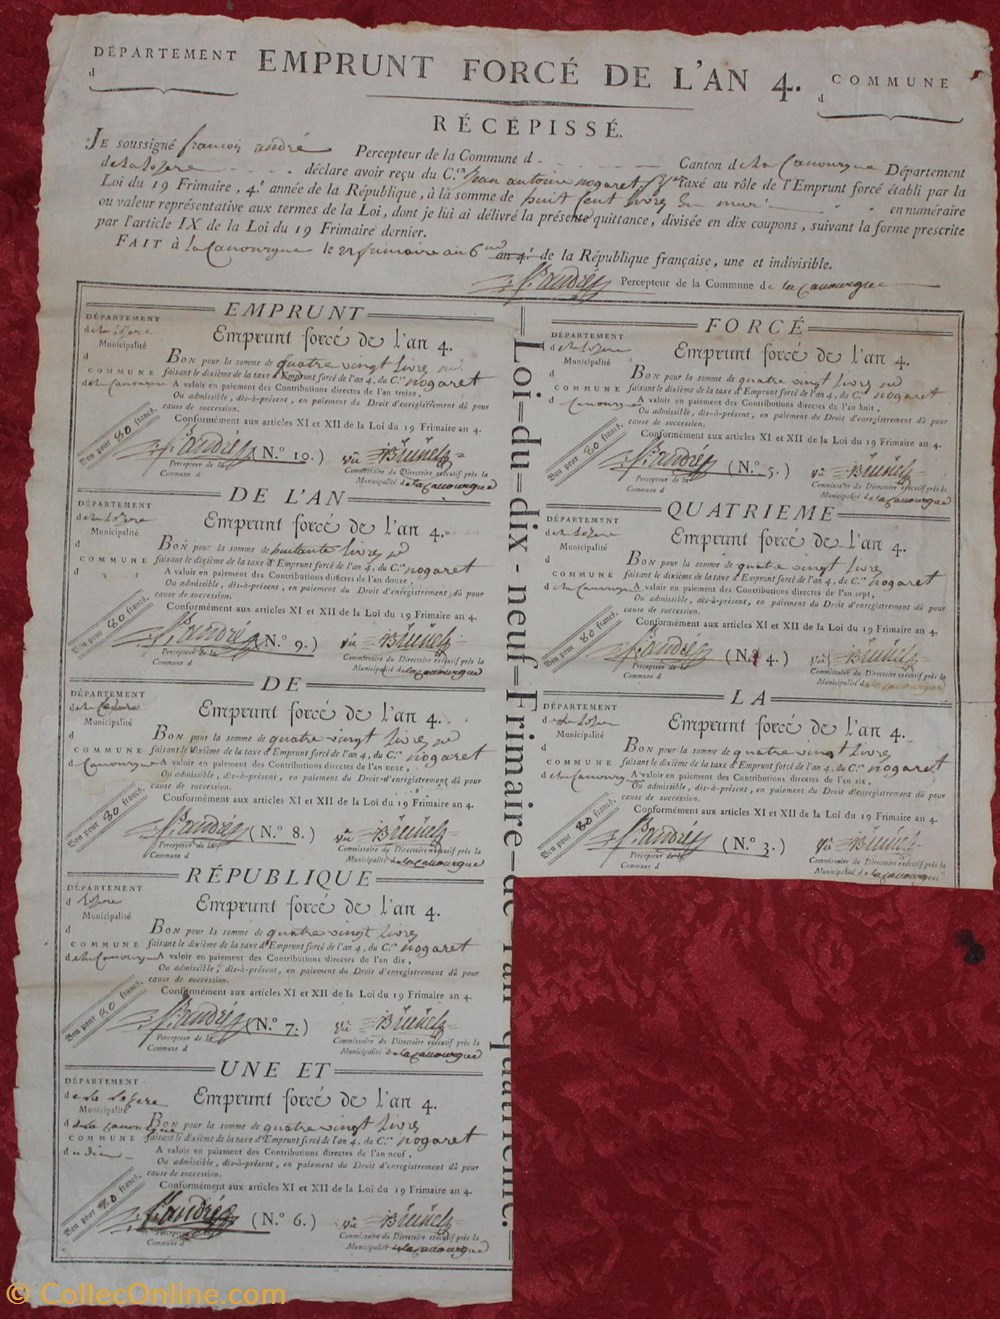 DÉPARTEMENT
d
EMPRUNT FORCÉ DE L'AN 4.
COMMUNE
d
RÉCÉPISSÉ.
JE soussigné françois andré Percepteur de la Commune d Canton de la Canourgue Département
de la lozere déclare avoir reçu du C.en jean antoine nogaret taxé au rôle de l'Emprunt forcé établi par la
Loi du 19 Frimaire, 4.e année de la République, à la somme de huit cent livres en numéraire
ou valeur représentative aux termes de la Loi, dont je lui ai délivré la présente quittance, divisée en dix coupons, suivant la forme prescrite
par l'article IX de la Loi du 19 Frimaire dernier.
FAIT à la Canourgue le frimaire an 6 an 4.e de la République française, une et indivisible.
f. andré Percepteur de la Commune de la Canourgue
Loi=du=dix-neuf=Frimaire=de l'an quatrieme.
EMPRUNT
DÉPARTEMENT
de la lozere
Municipalité
d
COMMUNE
de la Canourgue
Emprunt forcé de l'an 4.
BON pour la somme de quatre vingt livres
faisant le dixième de la taxe d'Emprunt forcé de l'an 4, du C.en nogaret
A valoir en paiement des Contributions directes de l'an treize,
Ou admissible, dès-à-présent, en paiement du Droit d'enregistrement dû pour
cause de succession.
Conformément aux articles XI et XII de la Loi du 19 Frimaire an 4.
Bon pour 80 francs.
f. andré (N.º 10.) vu Brunel
Percepteur de la
Commune d
Commissaire du Directoire exécutif près la
Municipalité de la Canourgue
DE L'AN
DÉPARTEMENT
de la lozere
Municipalité
d
COMMUNE
d
Emprunt forcé de l'an 4.
BON pour la somme de huitante livres
faisant le dixième de la taxe d'Emprunt forcé de l'an 4, du C.en nogaret
A valoir en paiement des Contributions directes de l'an douze,
Ou admissible, dès-à-présent, en paiement du Droit d'enregistrement dû pour
cause de succession.
Conformément aux articles XI et XII de la Loi du 19 Frimaire an 4.
Bon pour 80 francs.
f. andré (N.º 9.) vu Brunel
Percepteur de la
Commune d
Commissaire du Directoire exécutif près la
Municipalité de la Canourgue
DE
DÉPARTEMENT
de la
Municipalité
d
COMMUNE
d Canourgue
Emprunt forcé de l'an 4.
BON pour la somme de quatre vingt livres
faisant le dixième de la taxe d'Emprunt forcé de l'an 4, du C.en nogaret
A valoir en paiement des Contributions directes de l'an onze,
Ou admissible, dès-à-présent, en paiement du Droit d'enregistrement dû pour
cause de succession.
Conformément aux articles XI et XII de la Loi du 19 Frimaire an 4.
Bon pour 80 francs.
f. andré (N.º 8.) vu Brunel
Percepteur de la
Commune d
Commissaire du Directoire exécutif près la
Municipalité de la Canourgue
RÉPUBLIQUE
DÉPARTEMENT
d lozere
Municipalité
d
COMMUNE
de la Canourgue
Emprunt forcé de l'an 4.
BON pour la somme de quatre vingt livres
faisant le dixième de la taxe d'Emprunt forcé de l'an 4, du C.en nogaret
A valoir en paiement des Contributions directes de l'an dix,
Ou admissible, dès-à-présent, en paiement du Droit d'enregistrement dû pour
cause de succession.
Conformément aux articles XI et XII de la Loi du 19 Frimaire an 4.
Bon pour 80 francs.
f. andré (N.º 7.) vu Brunel
Percepteur de la
Commune d
Commissaire du Directoire exécutif près la
Municipalité de la Canourgue
UNE ET
DÉPARTEMENT
de la lozere
Municipalité
d de la Canourgue
COMMUNE
d
Emprunt forcé de l'an 4.
BON pour la somme de quatre vingt livres
faisant le dixième de la taxe d'Emprunt forcé de l'an 4, du C.en nogaret
A valoir en paiement des Contributions directes de l'an neuf,
Ou admissible, dès-à-présent, en paiement du Droit d'enregistrement dû pour
cause de succession.
Conformément aux articles XI et XII de la Loi du 19 Frimaire an 4.
Bon pour 80 francs.
f. andré (N.º 6.) vu Brunel
Percepteur de la
Commune d
Commissaire du Directoire exécutif près la
Municipalité de la Canourgue
FORCÉ
DÉPARTEMENT
de la lozere
Municipalité
d
COMMUNE
d Canourgue
Emprunt forcé de l'an 4.
BON pour la somme de quatre vingt livres
faisant le dixième de la taxe d'Emprunt forcé de l'an 4, du C.en nogaret
A valoir en paiement des Contributions directes de l'an huit,
Ou admissible, dès-à-présent, en paiement du Droit d'enregistrement dû pour
cause de succession.
Conformément aux articles XI et XII de la Loi du 19 Frimaire an 4.
Bon pour 80 francs.
f. andré (N.º 5.) vu Brunel
Percepteur de la
Commune d
Commissaire du Directoire exécutif près la
Municipalité de la Canourgue
QUATRIEME
DÉPARTEMENT
de la lozere
Municipalité
d
COMMUNE
de la Canourgue
Emprunt forcé de l'an 4.
BON pour la somme de quatre vingt livres
faisant le dixième de la taxe d'Emprunt forcé de l'an 4, du C.en nogaret
A valoir en paiement des Contributions directes de l'an sept,
Ou admissible, dès-à-présent, en paiement du Droit d'enregistrement dû pour
cause de succession.
Conformément aux articles XI et XII de la Loi du 19 Frimaire an 4.
Bon pour 80 francs.
f. andré (N.º 4.) vu Brunel
Percepteur de la
Commune d
Commissaire du Directoire exécutif près la
Municipalité de la Canourgue
LA
DÉPARTEMENT
de la lozere
Municipalité
d
COMMUNE
de la Canourgue
Emprunt forcé de l'an 4.
BON pour la somme de quatre vingt livres
faisant le dixième de la taxe d'Emprunt forcé de l'an 4, du C.en nogaret
A valoir en paiement des Contributions directes de l'an six,
Ou admissible, dès-à-présent, en paiement du Droit d'enregistrement dû pour
cause de succession.
Conformément aux articles XI et XII de la Loi du 19 Frimaire an 4.
Bon pour 80 francs.
f. andré (N.º 3.) vu Brunel
Percepteur de la
Commune d
Commissaire du Directoire exécutif près la
Municipalité de la Canourgue
© CollecOnline.com